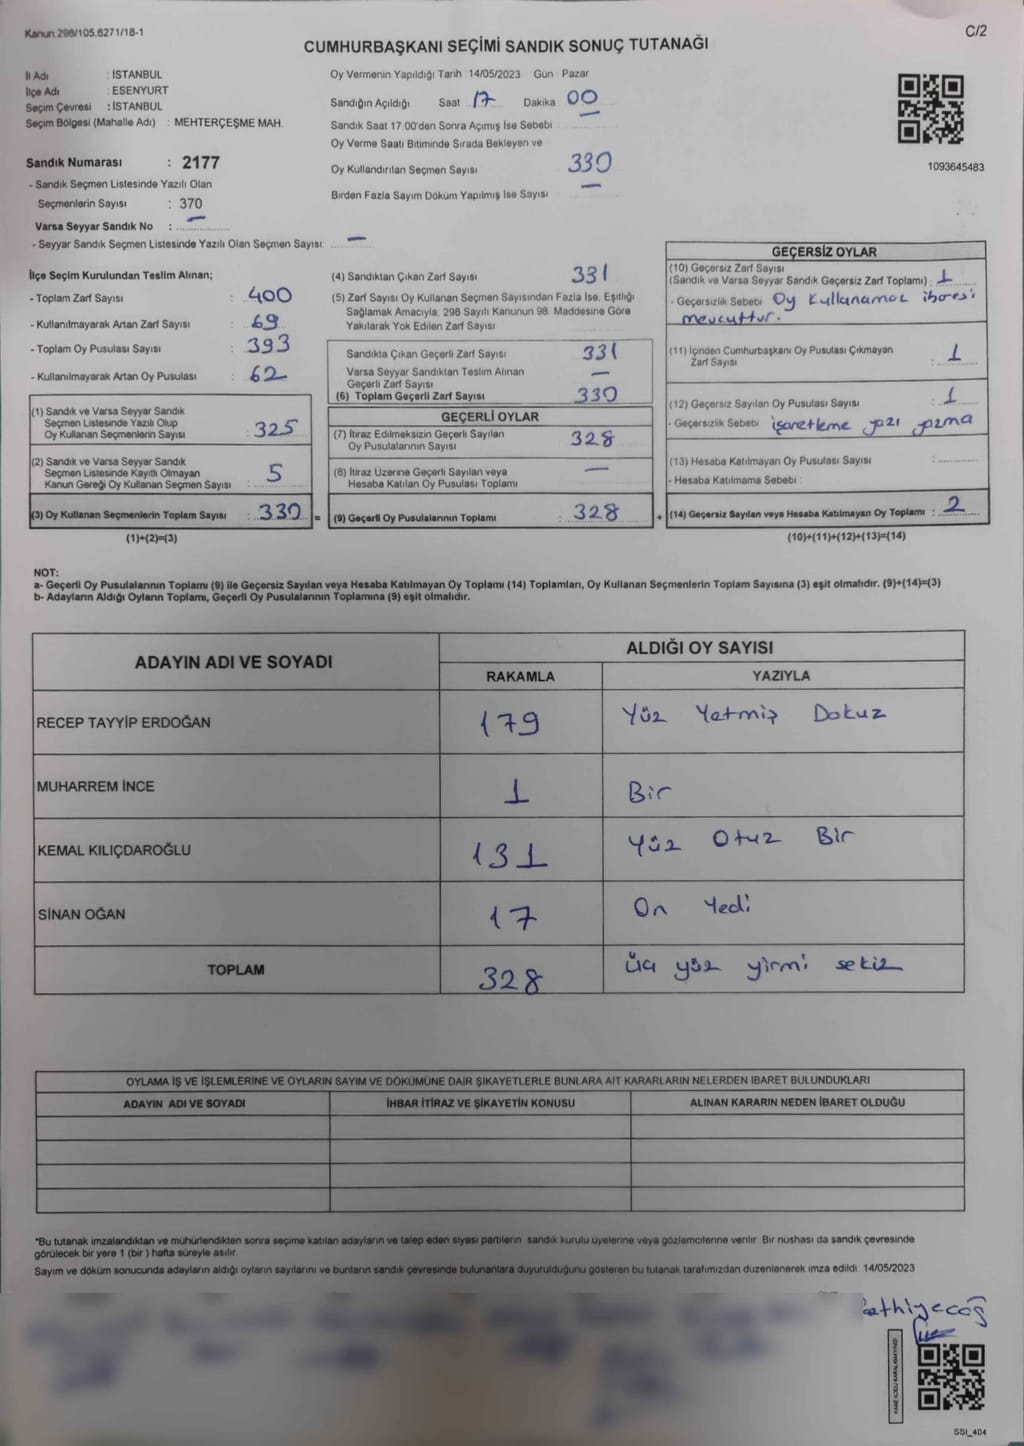 Kanun.298/105,6271/18-1
C/2
CUMHURBAŞKANI SEÇİMİ SANDIK SONUÇ TUTANAĞI
İl Adı : İSTANBUL
İlçe Adı : ESENYURT
Seçim Çevresi : İSTANBUL
Seçim Bölgesi (Mahalle Adı) : MEHTERÇEŞME MAH.
Sandık Numarası : 2177
- Sandık Seçmen Listesinde Yazılı Olan
Seçmenlerin Sayısı : 370
Varsa Seyyar Sandık No : —
- Seyyar Sandık Seçmen Listesinde Yazılı Olan Seçmen Sayısı: —
Oy Vermenin Yapıldığı Tarih :14/05/2023 Gün Pazar
Sandığın Açıldığı Saat 17 Dakika 00
Sandık Saat 17:00'den Sonra Açımış İse Sebebi —
Oy Verme Saati Bitiminde Sırada Bekleyen ve
Oy Kullandırılan Seçmen Sayısı 330
Birden Fazla Sayım Döküm Yapılmış İse Sayısı —
1093645483
İlçe Seçim Kurulundan Teslim Alınan;
- Toplam Zarf Sayısı : 400
- Kullanılmayarak Artan Zarf Sayısı : 69
- Toplam Oy Pusulası Sayısı : 393
- Kullanılmayarak Artan Oy Pusulası : 62
(1) Sandık ve Varsa Seyyar Sandık
Seçmen Listesinde Yazılı Olup
Oy Kullanan Seçmenlerin Sayısı : 325
(2) Sandık ve Varsa Seyyar Sandık
Seçmen Listesinde Kayıtlı Olmayan
Kanun Gereği Oy Kullanan Seçmen Sayısı : 5
(3) Oy Kullanan Seçmenlerin Toplam Sayısı : 330 =
(1)+(2)=(3)
(4) Sandıktan Çıkan Zarf Sayısı 331
(5) Zarf Sayısı Oy Kullanan Seçmen Sayısından Fazla İse, Eşitliği
Sağlamak Amacıyla, 298 Sayılı Kanunun 98. Maddesine Göre
Yakılarak Yok Edilen Zarf Sayısı
Sandıkta Çıkan Geçerli Zarf Sayısı 331
Varsa Seyyar Sandıktan Teslim Alınan
Geçerli Zarf Sayısı —
(6) Toplam Geçerli Zarf Sayısı 330
GEÇERLİ OYLAR
(7) İtiraz Edilmeksizin Geçerli Sayılan
Oy Pusulalarının Sayısı 328
(8) İtiraz Üzerine Geçerli Sayılan veya
Hesaba Katılan Oy Pusulası Toplamı —
(9) Geçerli Oy Pusulalarının Toplamı 328 +
GEÇERSİZ OYLAR
(10) Geçersiz Zarf Sayısı
(Sandık ve Varsa Seyyar Sandık Geçersiz Zarf Toplamı) : 1
- Geçersizlik Sebebi : Oy Kullanamaz ibaresi
mevcuttur.
(11) İçinden Cumhurbaşkanı Oy Pusulası Çıkmayan
Zarf Sayısı : 1
(12) Geçersiz Sayılan Oy Pusulası Sayısı : 1
- Geçersizlik Sebebi : işaretleme yazı yazma
(13) Hesaba Katılmayan Oy Pusulası Sayısı :
- Hesaba Katılmama Sebebi :
(14) Geçersiz Sayılan veya Hesaba Katılmayan Oy Toplamı : 2
(10)+(11)+(12)+(13)=(14)
NOT:
a- Geçerli Oy Pusulalarının Toplamı (9) ile Geçersiz Sayılan veya Hesaba Katılmayan Oy Toplamı (14) Toplamları, Oy Kullanan Seçmenlerin Toplam Sayısına (3) eşit olmalıdır. (9)+(14)=(3)
b- Adayların Aldığı Oyların Toplamı, Geçerli Oy Pusulalarının Toplamına (9) eşit olmalıdır.
ADAYIN ADI VE SOYADI
ALDIĞI OY SAYISI
RAKAMLA YAZIYLA
RECEP TAYYİP ERDOĞAN 179 Yüz Yetmiş Dokuz
MUHARREM İNCE 1 Bir
KEMAL KILIÇDAROĞLU 131 Yüz Otuz Bir
SİNAN OĞAN 17 On Yedi
TOPLAM 328 Üç yüz yirmi sekiz
OYLAMA İŞ VE İŞLEMLERİNE VE OYLARIN SAYIM VE DÖKÜMÜNE DAİR ŞİKAYETLERLE BUNLARA AİT KARARLARIN NELERDEN İBARET BULUNDUKLARI
ADAYIN ADI VE SOYADI İHBAR İTİRAZ VE ŞİKAYETİN KONUSU ALINAN KARARIN NEDEN İBARET OLDUĞU
*Bu tutanak imzalandıktan ve mühürlendikten sonra seçime katılan adayların ve talep eden siyasi partilerin sandık kurulu üyelerine veya gözlemcilerine verilir. Bir nüshası da sandık çevresinde
görülecek bir yere 1 (bir ) hafta süreyle asılır.
Sayım ve döküm sonucunda adayların aldığı oyların sayılarını ve bunların sandık çevresinde bulunanlara duyurulduğunu gösteren bu tutanak tarafımızdan düzenlenerek imza edildi. 14/05/2023
SSI_404